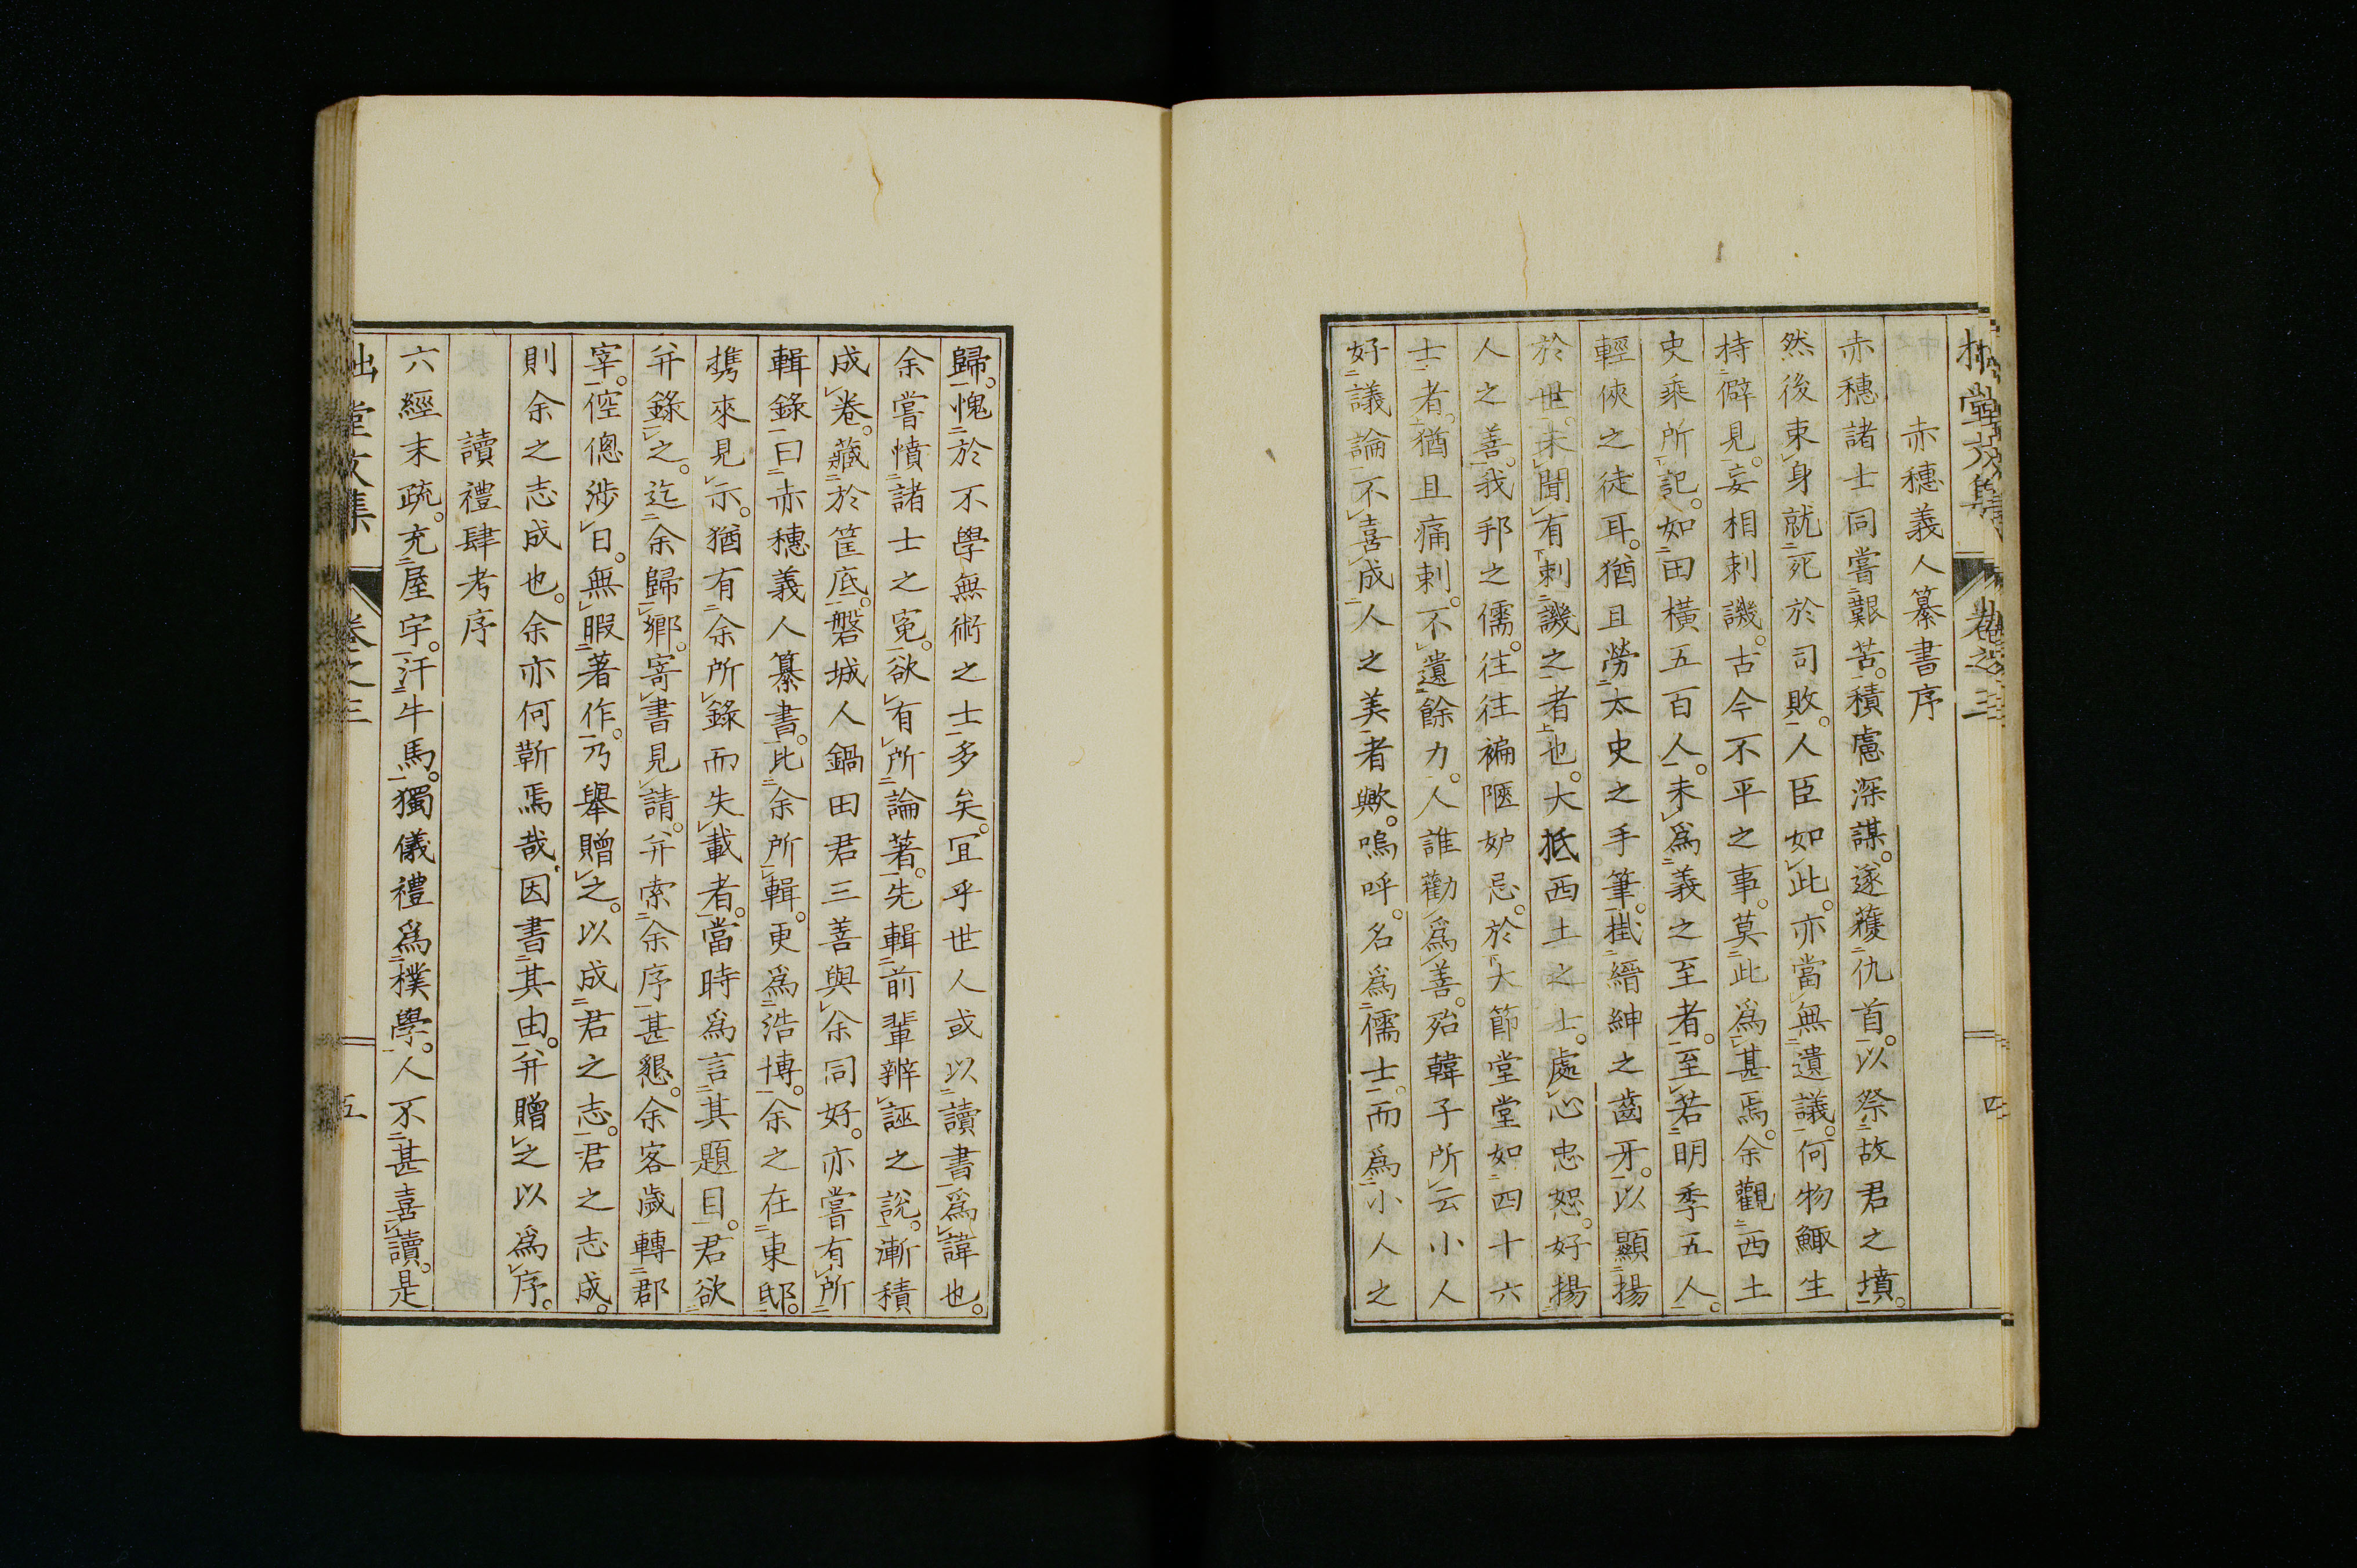 拙堂文集 卷之三 四
赤穗義人纂書序
赤穗諸士同嘗艱苦。積慮深謀。遂獲仇首。以祭故君之墳。
然後束身就死於司敗。人臣如此。亦當無遺議。何物鯫生
持僻見。妄相刺譏。古今不平之事。莫此爲甚焉。余觀西土
史乘所記。如田橫五百人。未爲義之至者。至若明季五人。
輕俠之徒耳。猶且勞太史之手筆。掛縉紳之齒牙。以顯揚
於世。未聞有刺譏之者也。大抵西土之士。處心忠恕。好揚
人之善。我邦之儒。往往褊隘妒忌。於大節堂堂如四十六
士者。猶且痛刺。不遺餘力。人誰勸爲善。殆韓子所云小人
好議論不喜成人之美者歟。嗚呼。名爲儒士。而爲小人之
歸。愧於不學無術之士多矣。冝乎世人或以讀書爲諱也。
余嘗憤諸士之冤。欲有所論著。先輯前輩辨誣之說。漸積
成卷。藏於筐底。磐城人鍋田君三善與余同好。亦嘗有所
輯錄曰赤穗義人纂書。比余所輯。更爲浩博。余之在東邸。
携來見示。猶有余所錄而失載者。當時爲言其題目。君欲
幷錄之。迄余歸鄉。寄書見請。幷索余序甚懇。余客歲轉郡
宰。倥傯涉日。無暇著作。乃舉贈之。以成君之志。君之志成。
則余之志成也。余亦何靳焉哉。因書其由。幷贈之以爲序。
讀禮肆考序
六經末疏。充屋宇。汗牛馬。獨儀禮爲樸學。人不甚喜讀。是
拙堂文集 卷之三 五